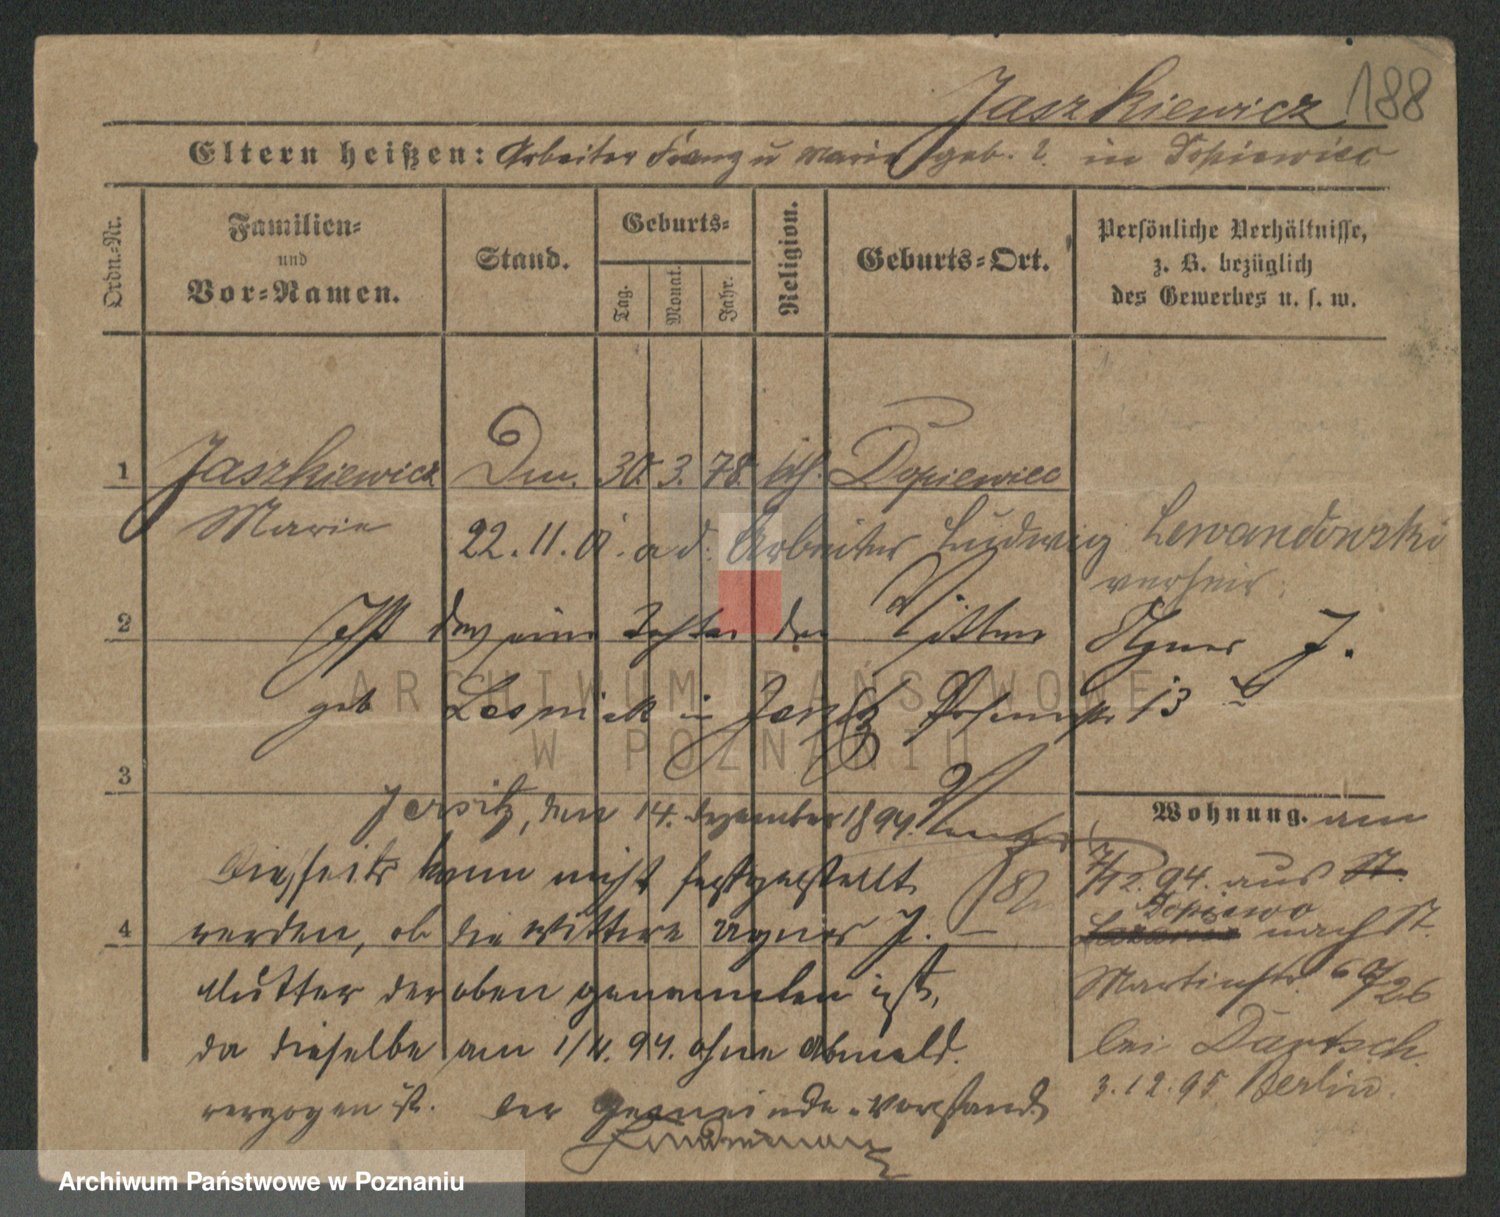 Jaszkiewicz 188
Eltern heißen: Arbeiter Franz u Marie geb. ?. in Dopiewiec
Ordn.-Nr.
Familien-
und
Vor-Namen.
Stand.
Geburts-
Tag.
Monat.
Jahr.
Religion.
Geburts-Ort.
Persönliche Verhältnisse,
z. B. bezüglich
des Gewerbes u. s. w.
1 Jaszkiewicz 30. 3. 78. kth. Dopiewiec
Marie
22. 11. 01. a d. Arbeiter Ludwig Lewandowski
verheir.
2 Ist eine Tochter der Wittwe Agnes J.
geb in Posenerstr 13
3
Jersitz, den 14. Dezember 1894.
Diesseits kann nicht festgestellt
4 werden, ob die Wittwe Agnes J. –
Mutter der oben genannten ist,
da dieselbe am 1/4. 94. ohne Abmeld.
verzogen ist. Der Gemeinde-Vorstand
Lindemann
Wohnung. am
7/12. 94. aus St.
Dopiewo
Lazarus nach St.
Martinstr.
bei Dartsch.
3. 12. 95 Berlin.
ARCHIWUM PAŃSTWOWE
W POZNANIU
Archiwum Państwowe w Poznaniu